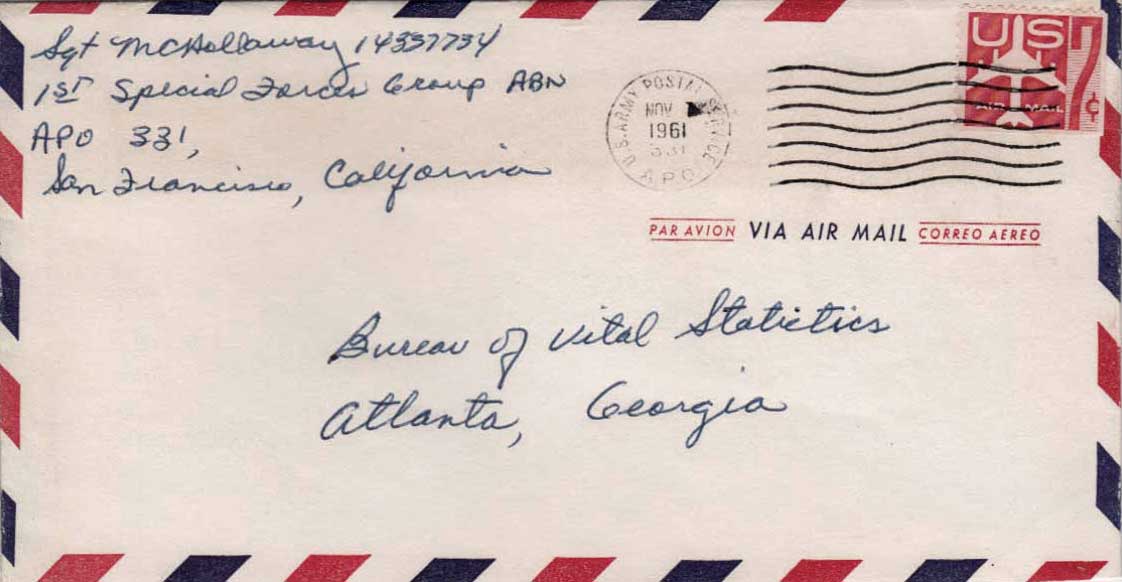 Sgt McHollaway 14337734
1st Special Forces Group ABN
APO 331,
San Francisco, California
U.S. ARMY POSTAL SERVICE
NOV
1961
331
APO
US
AIR MAIL
7¢
PAR AVION VIA AIR MAIL CORREO AEREO
Bureau of Vital Statictics
Atlanta, Georgia